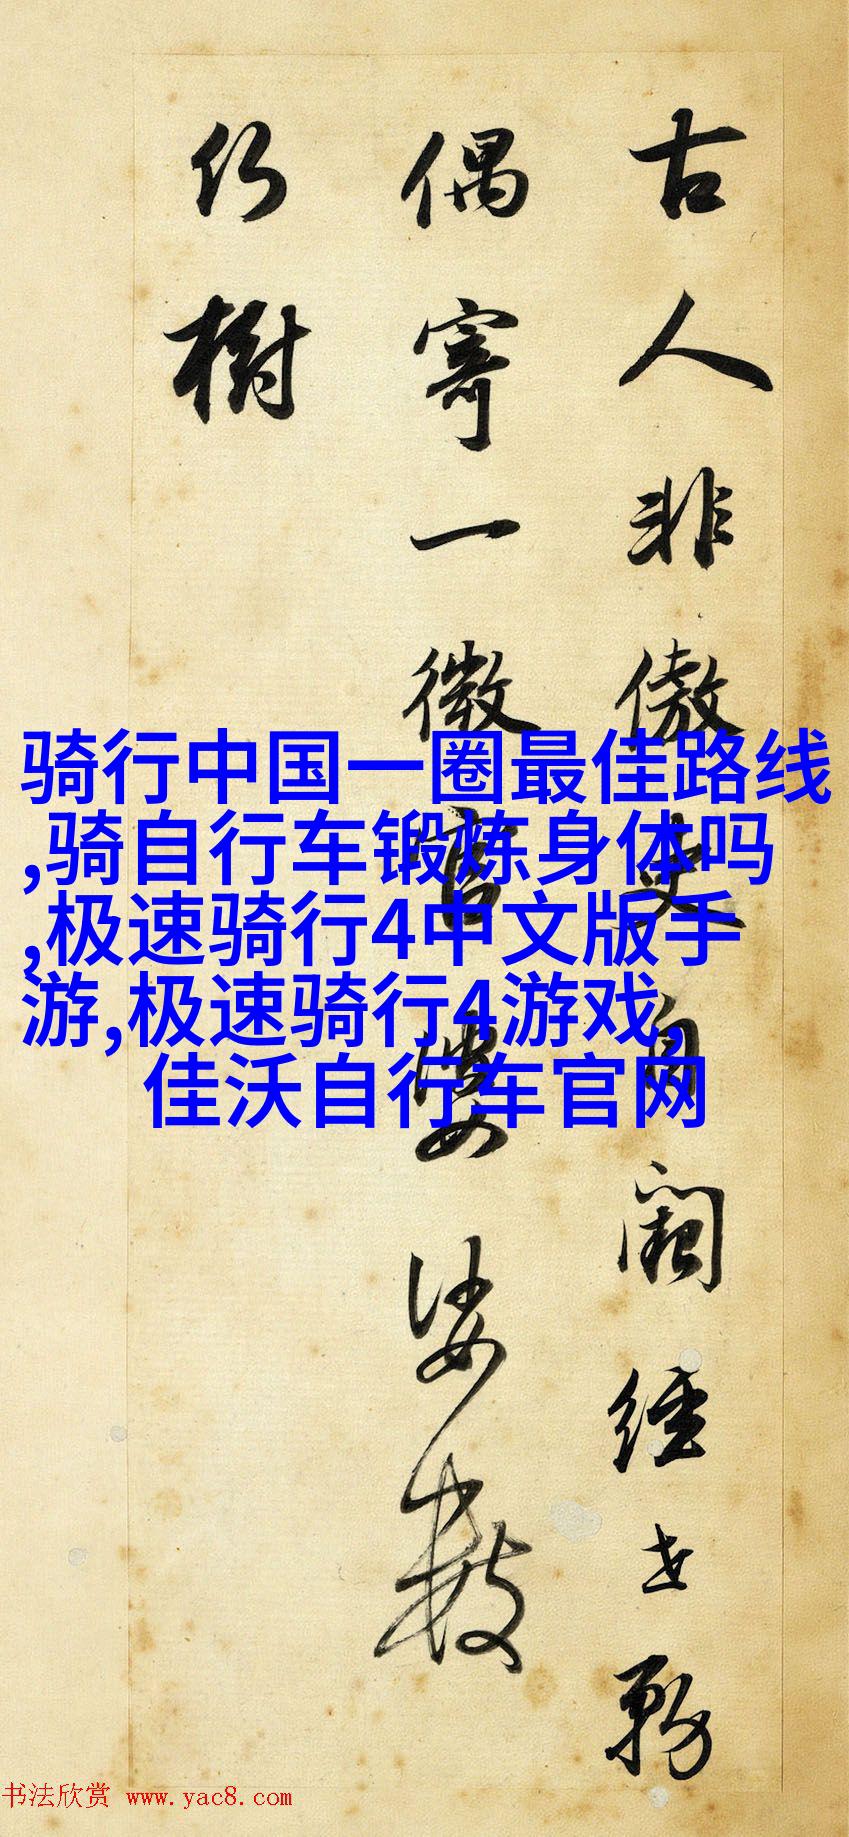 古人非傲吏自闕經世務
偶寄一微官婆娑數
樹
骑行中国一圈最佳路线
,骑自行车锻炼身体吗
,极速骑行4中文版手
游,极速骑行4游戏,
佳沃自行车官网
书法欣赏 www.yac8.com